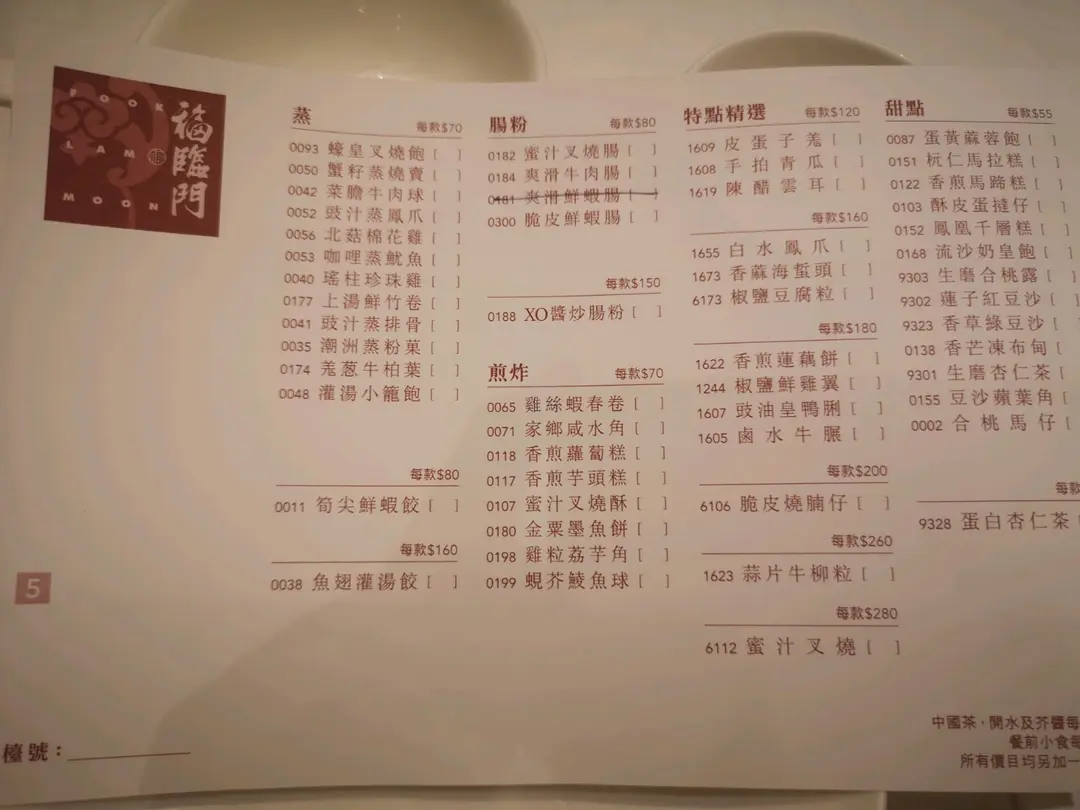 FOOK
LAM
MOON
福臨門
蒸
每款$70
0093 蠔皇叉燒飽 [ ]
0050 蟹籽蒸燒賣 [ ]
0042 菜膽牛肉球 [ ]
0052 豉汁蒸鳳爪 [ ]
0056 北菇棉花雞 [ ]
0053 咖哩蒸魷魚 [ ]
0040 瑤柱珍珠雞 [ ]
0177 上湯鮮竹卷 [ ]
0041 豉汁蒸排骨 [ ]
0035 潮洲蒸粉菓 [ ]
0174 羗葱牛柏葉 [ ]
0048 灌湯小籠飽 [ ]
每款$80
0011 筍尖鮮蝦餃 [ ]
每款$160
0038 魚翅灌湯餃 [ ]
腸粉
每款$80
0182 蜜汁叉燒腸 [ ]
0184 爽滑牛肉腸 [ ]
0181 爽滑鮮蝦腸 [ ]
0300 脆皮鮮蝦腸 [ ]
每款$150
0188 XO醬炒腸粉 [ ]
煎炸
每款$70
0065 雞絲蝦春卷 [ ]
0071 家鄉咸水角 [ ]
0118 香煎蘿蔔糕 [ ]
0117 香煎芋頭糕 [ ]
0107 蜜汁叉燒酥 [ ]
0180 金粟墨魚餅 [ ]
0198 雞粒荔芋角 [ ]
0199 蜆芥鯪魚球 [ ]
特點精選
每款$120
1609 皮蛋子羗 [ ]
1608 手拍青瓜 [ ]
1619 陳醋雲耳 [ ]
每款$160
1655 白水鳳爪 [ ]
1673 香蔴海蜇頭 [ ]
6173 椒鹽豆腐粒 [ ]
每款$180
1622 香煎蓮藕餅 [ ]
1244 椒鹽鮮雞翼 [ ]
1607 豉油皇鴨脷 [ ]
1605 鹵水牛𦟌 [ ]
每款$200
6106 脆皮燒腩仔 [ ]
每款$260
1623 蒜片牛柳粒 [ ]
每款$280
6112 蜜汁叉燒 [ ]
甜點
每款$55
0087 蛋黃蔴蓉飽 [ ]
0151 杬仁馬拉糕 [ ]
0122 香煎馬蹄糕 [ ]
0103 酥皮蛋撻仔 [ ]
0152 鳳凰千層糕 [ ]
0168 流沙奶皇飽 [ ]
9303 生磨合桃露 [ ]
9302 蓮子紅豆沙 [ ]
9323 香草綠豆沙 [
0138 香芒凍布甸 [
9301 生磨杏仁茶 [
0155 豆沙蘋葉角 [
0002 合桃馬仔 [
每款
9328 蛋白杏仁茶 [
5
檯號：
中國茶，開水及芥醬每
餐前小食每
所有價目均另加一